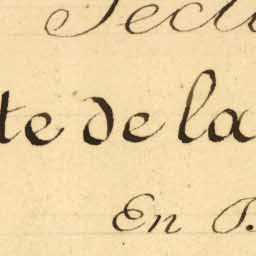 Sect
te de la
En B